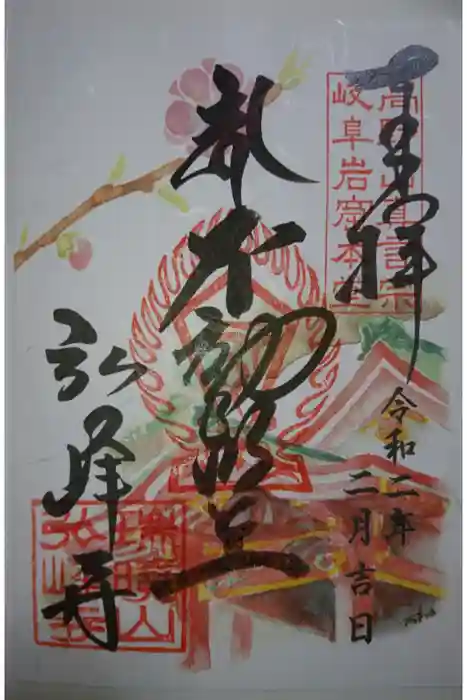 奉拝
高野山真言宗
岐阜岩窟本堂
令和二年
二月吉日
不動明王
弘峰寺
弘峰寺